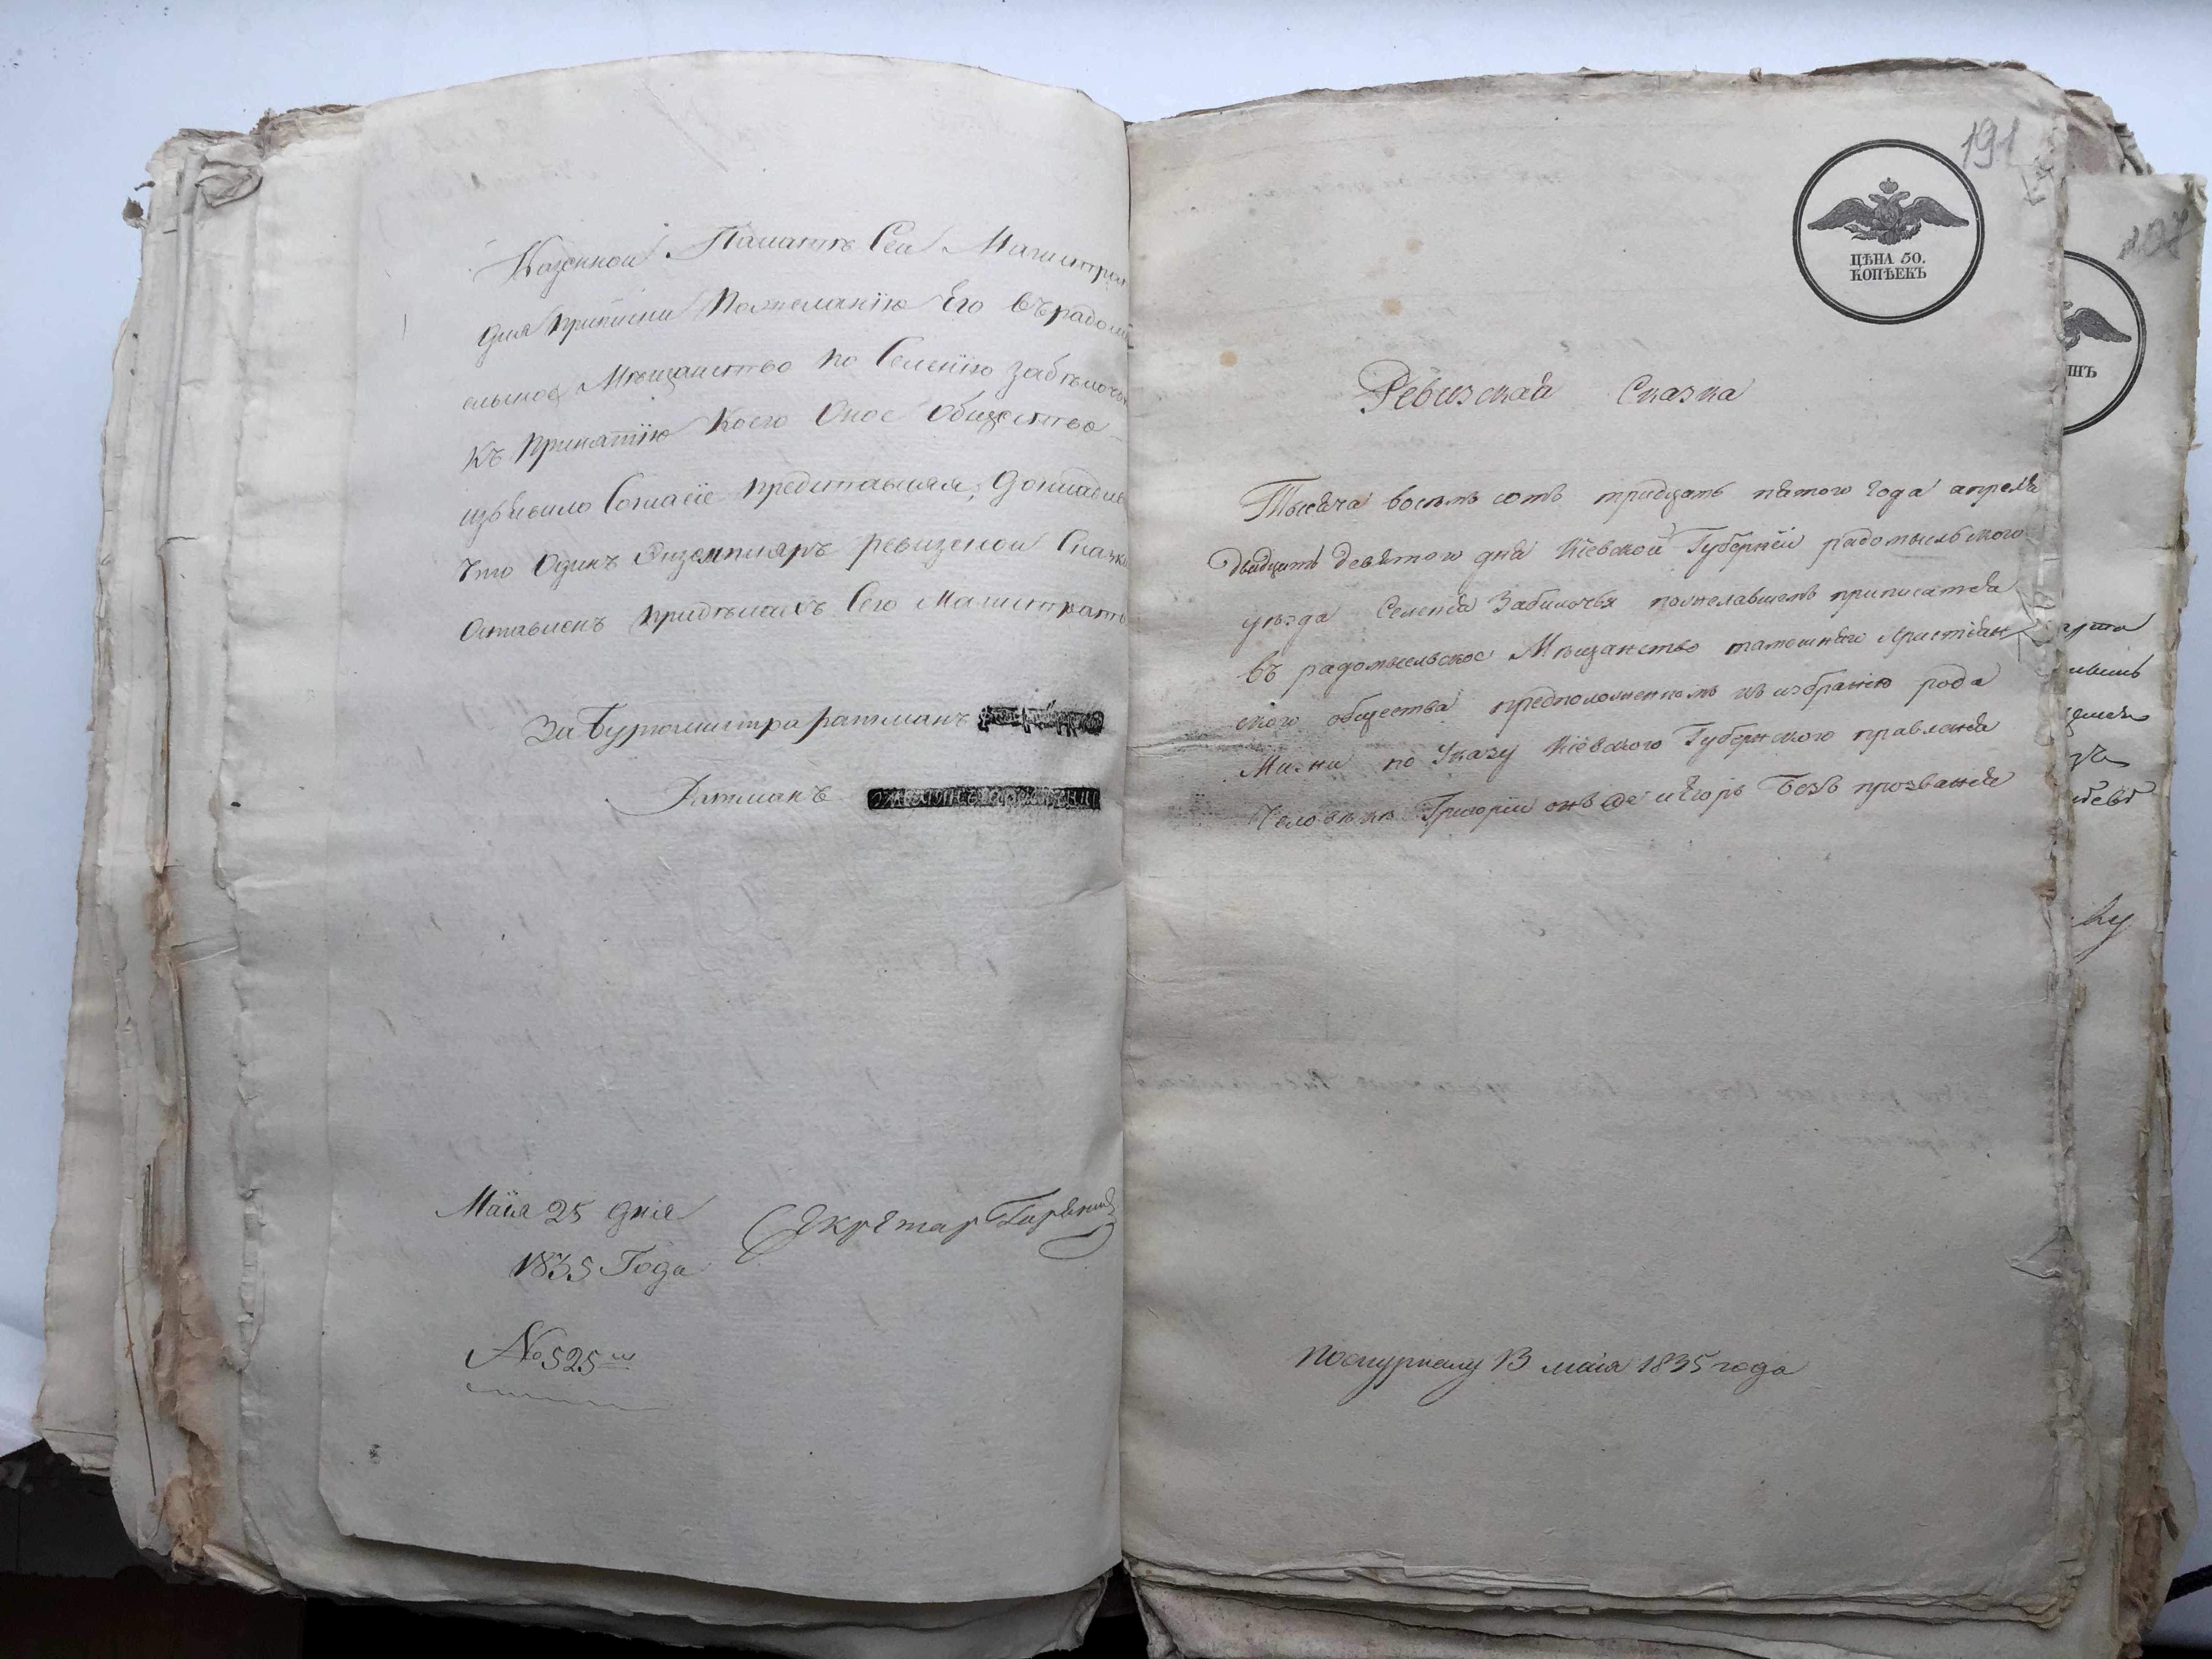 Казенной Палатѣ Сей Магистра
для приписки Пожеланїю Его въ радом
ельское Мѣщанство по Селенїю Забѣлочь
Къ Принятїю Коего Оное Общество
изъявило Согласїе представляя; Донал
что Одинъ Экземпляръ ревизской Сказк
Оставленъ придѣлахъ Сего Магистрат
За Бургомистра ратманъ
Ратманъ
Маїя 25 дня
1835 Года
Секретар
№ 525
191
ЦѢНА 50.
КОПѢЕКЪ
Ревизская Сказка
Тысяча восемь сотъ тридцать пятого года апреля
двадцать девятого дня Кїевской Губернїи радомысльского
уѣзда Селенїя Забилочья пожелавшемъ приписатся
въ радомысльское Мѣщанство тамошняго христїян
ского общества предположенномъ къ избранїю рода
Жизни по Указу Кїевского Губернского правленїя
Человѣкѣ Григорїи онъ же и Егоръ Безъ прозванїя
по журналу 13 маїя 1835 года